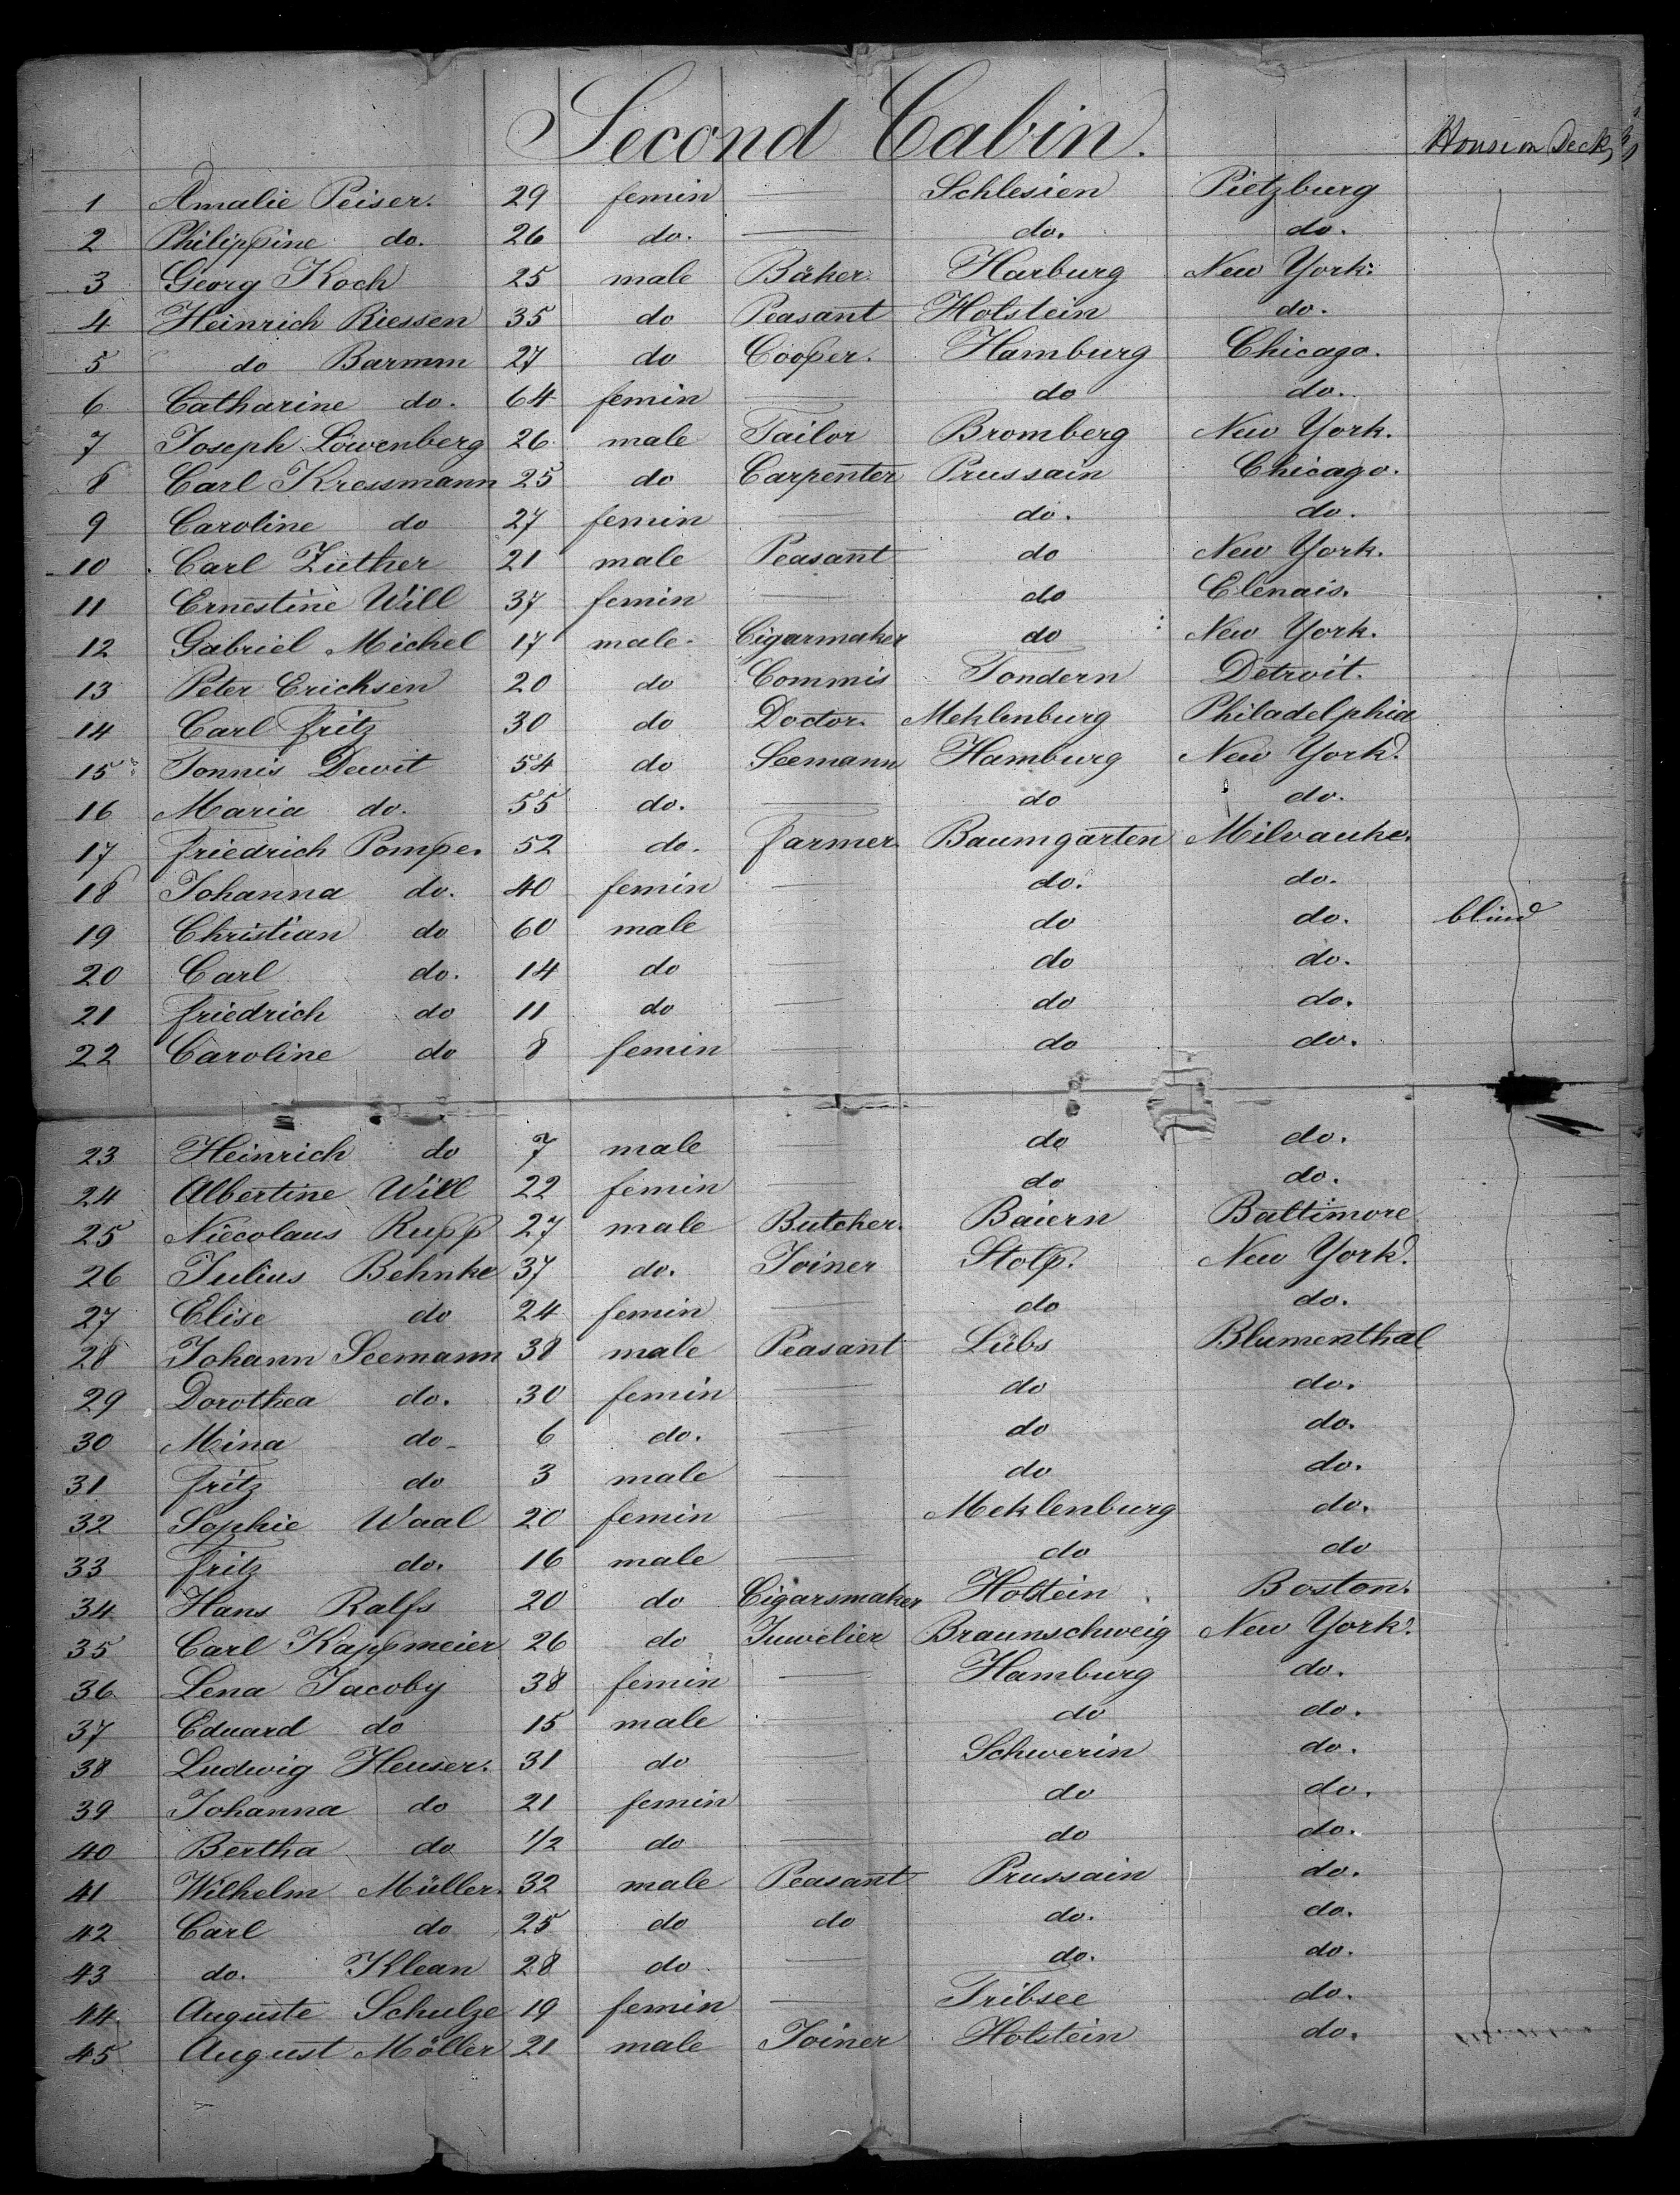 Second Cabin.
House on Deck
1 Amalie Peiser. 29 femin — Schlesien Pietzburg
2 Philippine do. 26 do. — do. do.
3 Georg Koch 25 male Bäker. Harburg New York.
4 Heinrich Riessen 35 do Peasant Holstein do.
5 do Barmm 27 do Cooper. Hamburg Chicago.
6 Catharine do. 64 femin — do do.
7 Joseph Löwenberg 26 male Tailor Bromberg New York.
8 Carl Kressmann 25 do Carpenter Prussain Chicago.
9 Caroline do 27 femin — do. do.
10 Carl Züther 21 male Peasant do New York.
11 Ernestine Will 37 femin — do Elenais.
12 Gabriel Michel 17 male Cigarmaker do New York.
13 Peter Ericksen 20 do Commis Tondern Detroit.
14 Carl Fritz 30 do Doctor. Meklenburg Philadelphia
15 Tonnis Dewit 54 do Seemann Hamburg New York.
16 Maria do. 55 do. — do do.
17 Friedrich Pompe. 52 do. Farmer. Baumgarten Milvauke.
18 Johanna do. 40 femin — do. do.
19 Christian do 60 male do do. blind
20 Carl do. 14 do — do do.
21 Friedrich do 11 do — do do.
22 Caroline do 8 femin — do do.
23 Heinrich do 7 male — do do.
24 Albertine Will 22 femin — do do.
25 Niecolaus Rupp 27 male Butcher. Baiern Baltimore
26 Julius Behnke 37 do. Joiner Stolp. New York.
27 Elise do 24 femin — do do.
28 Johann Seemann 38 male Peasant Lübs Blumenthal
29 Dorothea do. 30 femin — do do.
30 Mina do 6 do. — do do.
31 Fritz do 3 male — do do.
32 Sophie Waal 20 femin — Meklenburg do.
33 Fritz do. 16 male — do do
34 Hans Ralfs 20 do Cigarsmaker Holstein Boston.
35 Carl Kappmeier 26 do Juwelier Braunschweig New York.
36 Lena Jacoby 38 femin — Hamburg do.
37 Eduard do 15 male — do do.
38 Ludwig Heuser. 31 do — Schwerin do.
39 Johanna do 21 femin — do do.
40 Bertha do 1/2 do — do do.
41 Wilhelm Müller. 32 male Peasant Prussain do.
42 Carl do 25 do do do. do.
43 do. Klean 28 do — do. do.
44 Auguste Schulze 19 femin — Tribsee do.
45 August Möller 21 male Joiner Holstein do.